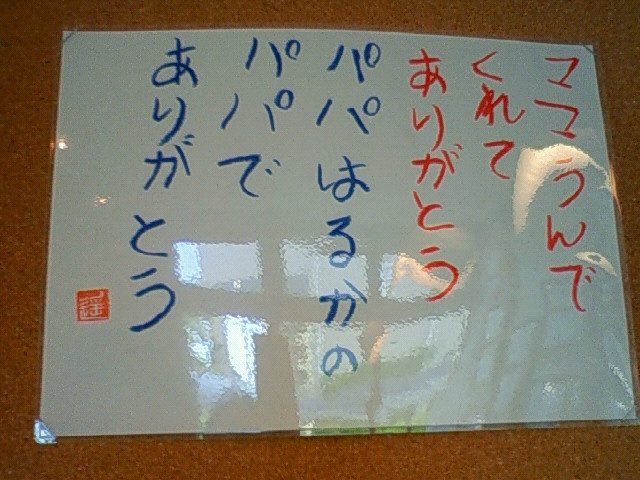 ママうんで
くれて
ありがとう
パパはるかの
パパで
ありがとう
遥